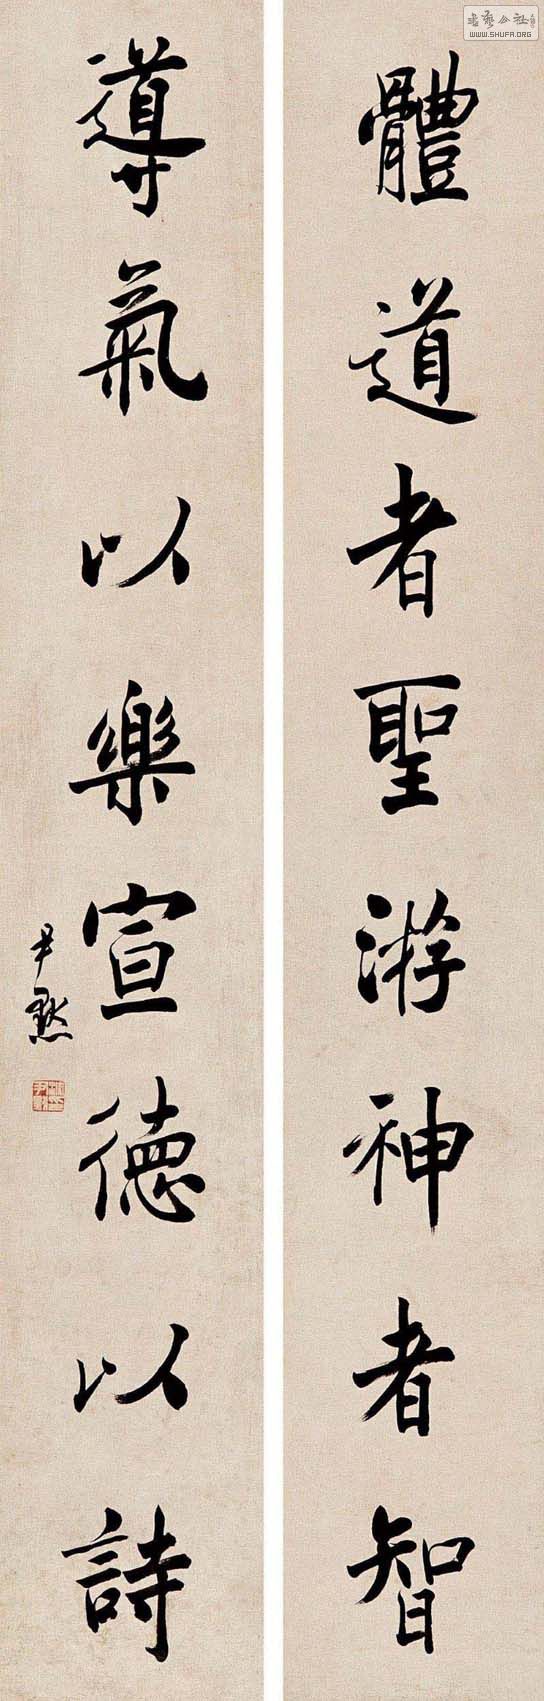 體道者聖游神者智
導氣以樂宣德以詩
尹默
WWW.SHUFA.ORG